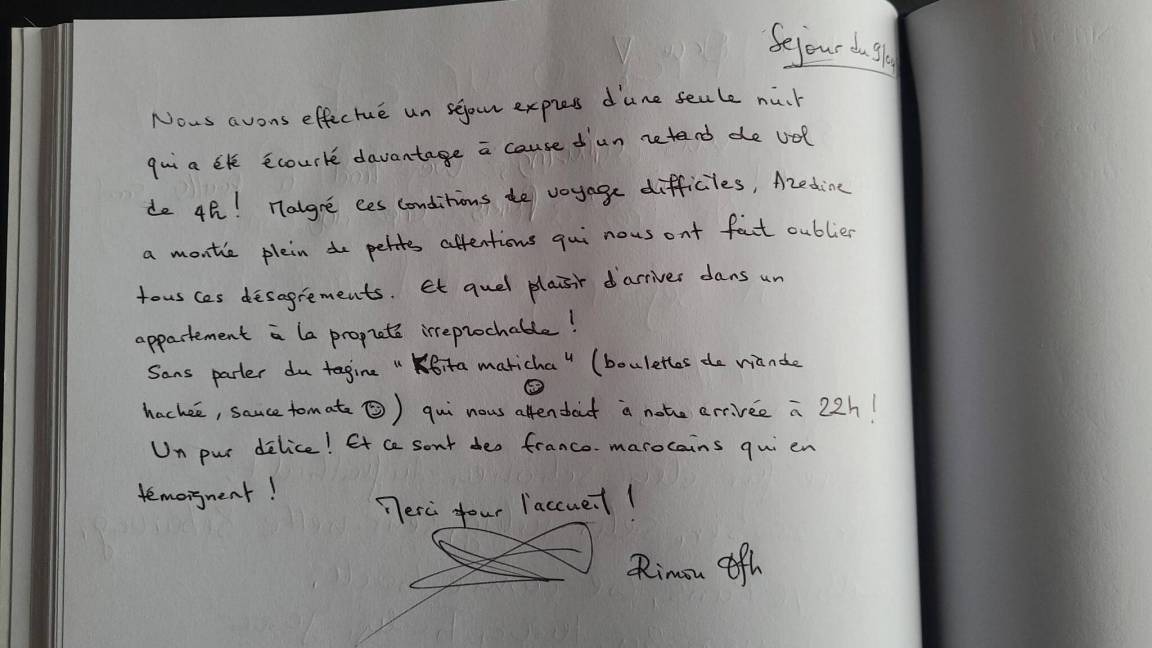 Séjour du 9/04
Nous avons effectué un séjour express d'une seule nuit
qui a été écourté davantage à cause d'un retard de vol
de 4h! Malgré ces conditions de voyage difficiles, Azedine
a montré plein de petites attentions qui nous ont fait oublier
tous ces désagréments. Et quel plaisir d'arriver dans un
appartement à la propreté irreprochable!
Sans parler du tagine "Kfita maticha" (boulettes de viande
hachée, sauce tomate ☺) qui nous attendait à notre arrivée à 22h!
Un pur délice! Et ce sont des franco-marocains qui en
témoignent!
Merci pour l'accueil!
Rimon